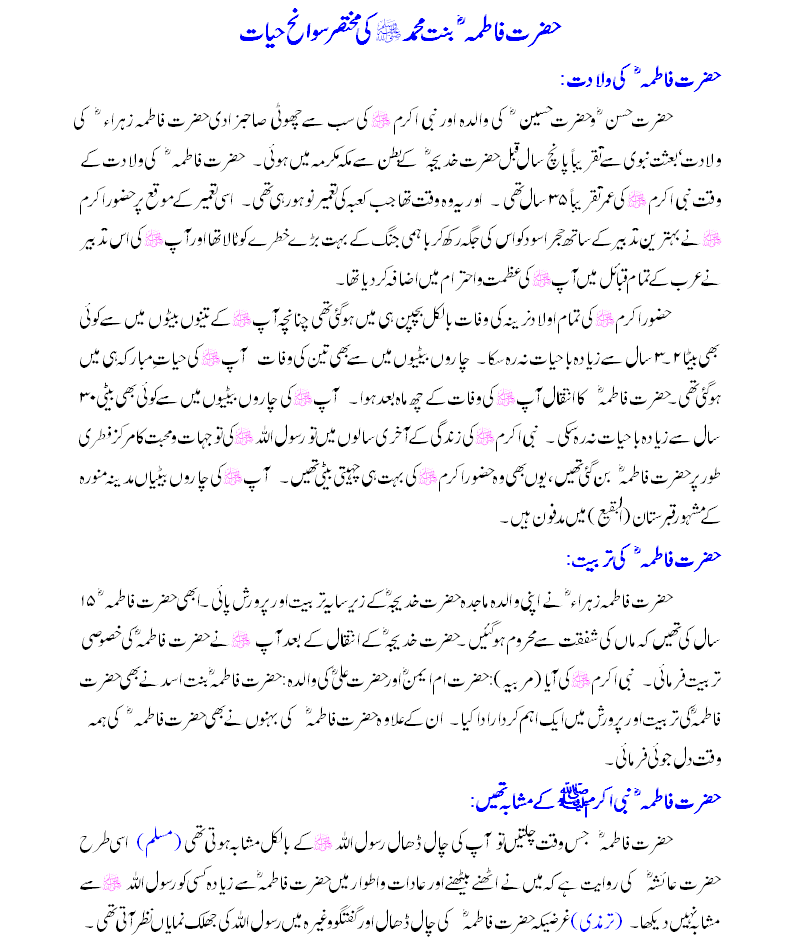 حضرت فاطمہؓ بنت محمد ﷺ کی مختصر سوانح حیات
حضرت فاطمہؓ کی ولادت:
حضرت حسنؓ وحضرت حسینؓ کی والدہ اور نبی اکرم ﷺ کی سب سے چھوٹی صاحبزادی حضرت فاطمہ زہراءؓ کی
ولادت، بعثت نبوی سے تقریباً پانچ سال قبل حضرت خدیجہؓ کے بطن سے مکہ مکرمہ میں ہوئی۔ حضرت فاطمہؓ کی ولادت کے
وقت نبی اکرم ﷺ کی عمر تقریباً ۳۵ سال تھی۔ اور یہ وہ وقت تھا جب کعبہ کی تعمیر نو ہورہی تھی۔ اسی تعمیر کے موقع پر حضور اکرم
ﷺ نے بہترین تدبیر کے ساتھ حجر اسود کو اس کی جگہ رکھ کر باہمی جنگ کے بہت بڑے خطرے کو ٹالا تھا اور آپ ﷺ کی اس تدبیر
نے عرب کے تمام قبائل میں آپ ﷺ کی عظمت واحترام میں اضافہ کردیا تھا۔
حضور اکرم ﷺ کی تمام اولاد نرینہ کی وفات بالکل بچپن ہی میں ہوگئی تھی چنانچہ آپ ﷺ کے تینوں بیٹوں میں سے کوئی
بھی بیٹا ۲۔۳ سال سے زیادہ باحیات نہ رہ سکا۔ چاروں بیٹیوں میں سے بھی تین کی وفات آپ ﷺ کی حیاتِ مبارکہ ہی میں
ہوگئی تھی۔ حضرت فاطمہؓ کا انتقال آپ ﷺ کی وفات کے چھ ماہ بعد ہوا۔ آپ ﷺ کی چاروں بیٹیوں میں سے کوئی بھی بیٹی ۳۰
سال سے زیادہ باحیات نہ رہ سکی۔ نبی اکرم ﷺ کی زندگی کے آخری سالوں میں تو رسول اللہ ﷺ کی توجہات ومحبت کا مرکز فطری
طور پر حضرت فاطمہؓ بن گئی تھیں، یوں بھی وہ حضور اکرم ﷺ کی بہت ہی چہیتی بیٹی تھیں۔ آپ ﷺ کی چاروں بیٹیاں مدینہ منورہ
کے مشہور قبرستان (البقیع) میں مدفون ہیں۔
حضرت فاطمہؓ کی تربیت:
حضرت فاطمہ زہراءؓ نے اپنی والدہ ماجدہ حضرت خدیجہؓ کے زیر سایہ تربیت اور پرورش پائی۔ ابھی حضرت فاطمہؓ ۱۵
سال کی تھیں کہ ماں کی شفقت سے محروم ہوگئیں۔ حضرت خدیجہؓ کے انتقال کے بعد آپ ﷺ نے حضرت فاطمہؓ کی خصوصی
تربیت فرمائی۔ نبی اکرم ﷺ کی آیا (مربیہ): حضرت ام ایمنؓ اور حضرت علیؓ کی والدہ: حضرت فاطمہؓ بنت اسد نے بھی حضرت
فاطمہؓ کی تربیت اور پرورش میں ایک اہم کردار ادا کیا۔ ان کے علاوہ حضرت فاطمہؓ کی بہنوں نے بھی حضرت فاطمہؓ کی ہمہ
وقت دل جوئی فرمائی۔
حضرت فاطمہؓ نبی اکرم ﷺ کے مشابہ تھیں:
حضرت فاطمہؓ جس وقت چلتیں تو آپ کی چال ڈھال رسول اللہ ﷺ کے بالکل مشابہ ہوتی تھی (مسلم) اسی طرح
حضرت عائشہؓ کی روایت ہے کہ میں نے اٹھنے بیٹھنے اور عادات واطوار میں حضرت فاطمہؓ سے زیادہ کسی کو رسول اللہ ﷺ سے
مشابہ نہیں دیکھا۔ (ترمذی) غرضیکہ حضرت فاطمہؓ کی چال ڈھال اور گفتگو وغیرہ میں رسول اللہ کی جھلک نمایاں نظر آتی تھی۔